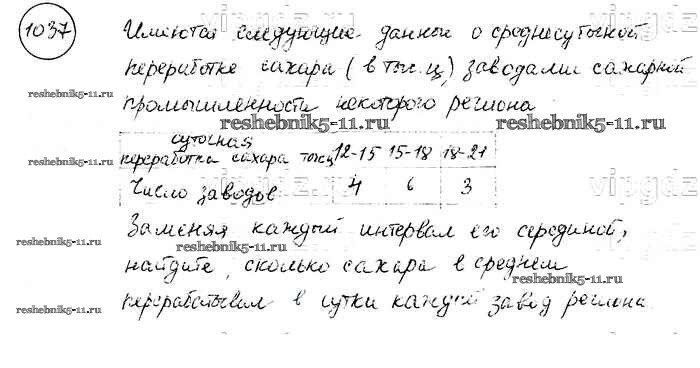 1037
Имеются следующие данные о среднесуточной
переработке сахара (в тыс.ц) заводами сахарной
reshebnik5-11.ru
промышленности некоторого региона
reshebnik5-11.ru reshebnik5-11.ru
суточная
переработка сахара тыс.ц 12-15 15-18 18-21
reshebnik5-11.ru
Число заводов 4 6 3
vipgdz
Заменяя каждый интервал его серединой,
reshebnik5-11.ru reshebnik5-11.ru
найдите, сколько сахара в среднем
перерабатывал в сутки каждый завод региона.
reshebnik5-11.ru reshebnik5-11.ru